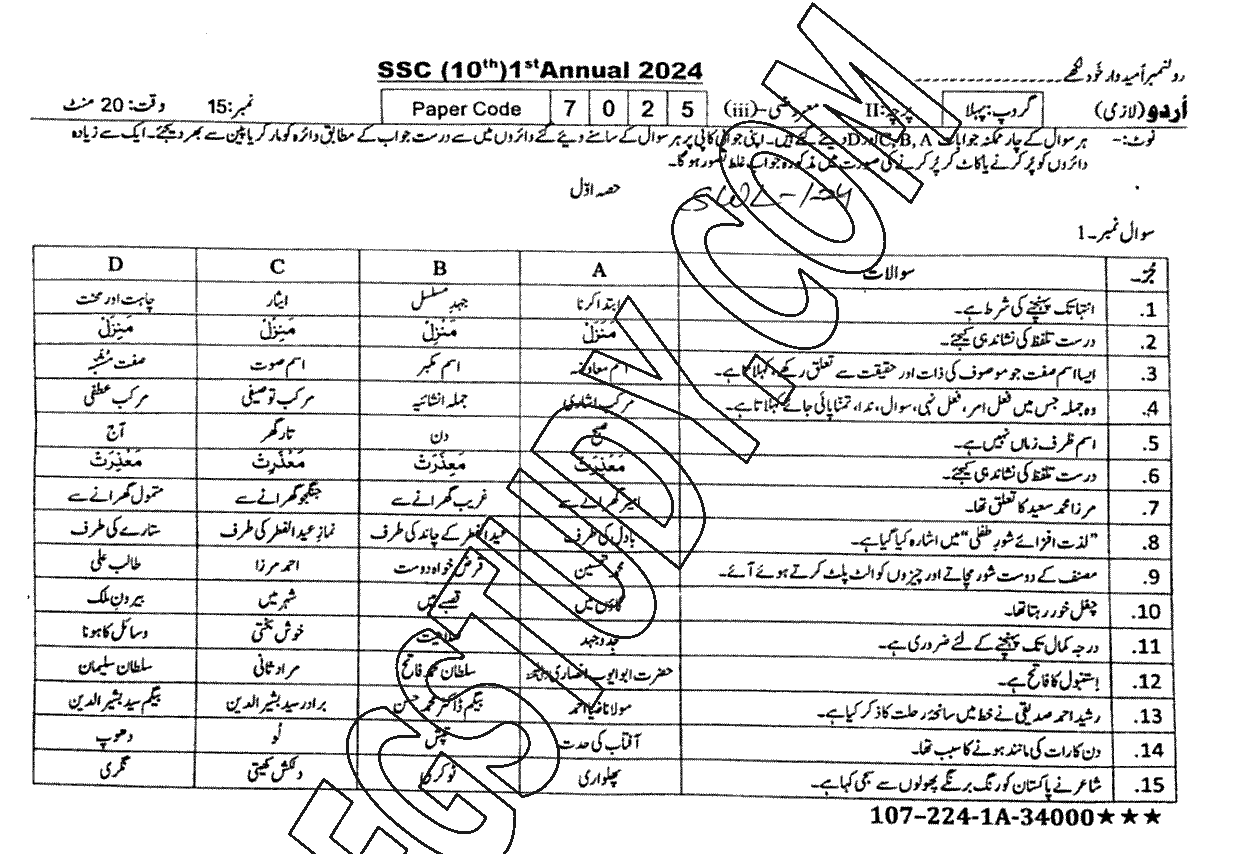 SSC (10th)1st Annual 2024
رولنمبر اُمیدوار خود لکھے
اُردو (لازمی) گروپ: پہلا پرچہ: II معروضی-(iii) Paper Code 7 0 2 5 نمبر: 15 وقت: 20 منٹ
نوٹ:- ہر سوال کے چار ممکنہ جوابات C, B, A اور D دیئے گئے ہیں۔ اپنی جوابی کاپی پر ہر سوال کے سامنے دیئے گئے دائروں میں سے درست جواب کے مطابق دائرہ کو مارکر یا پین سے بھر دیجئے۔ ایک سے زیادہ
دائروں کو پُر کرنے یا کاٹ کر پُر کرنے کی صورت میں مذکورہ جواب غلط تصور ہو گا۔
حصہ اوّل
سوال نمبر۔1
جُز۔ سوالات A B C D
1. انتہا تک پہنچنے کی شرط ہے۔ ابتدا کرنا جہدِ مسلسل ایثار چاہت اور محنت
2. درست تلفظ کی نشاندہی کیجئے۔
3. ایسا اسم صفت جو موصوف کی ذات اور حقیقت سے تعلق رکھے، کہلاتا ہے۔ اسم معاوضہ اسم مکبر اسم صوت صفت مشبّہ
4. وہ جملہ جس میں فعل امر، فعل نہی، سوال، ندا، تمنا پائی جائے کہلاتا ہے۔ مرکب اشاری جملہ انشائیہ مرکب توصیفی مرکب عطفی
5. اسم ظرف زماں نہیں ہے۔ صبح دن تار گھر آج
6. درست تلفظ کی نشاندہی کیجئے۔
7. مرزا محمد سعید کا تعلق تھا۔ امیر گھرانے سے غریب گھرانے سے جنگجو گھرانے سے متمول گھرانے سے
8. "لذت افزائے شورِ طفلی" میں اشارہ کیا گیا ہے۔ بادل کی طرف عید الفطر کے چاند کی طرف نمازِ عید الفطر کی طرف ستارے کی طرف
9. مصنف کے دوست شور مچاتے اور چیزوں کو الٹ پلٹ کرتے ہوئے آئے۔ محمد تحسین قرض خواہ دوست احمد مرزا طالب علی
10. چغل خور رہتا تھا۔ گاؤں میں قصبے میں شہر میں بیرونِ ملک
11. درجہ کمال تک پہنچنے کے لئے ضروری ہے۔ جدوجہد خوش بختی وسائل کا ہونا
12. استنبول کا فاتح ہے۔ حضرت ابو ایوب انصاری سلطان محمد فاتح مراد ثانی سلطان سلیمان
13. رشید احمد صدیقی نے خط میں سانحۂ رحلت کا ذکر کیا ہے۔ مولانا ضیا احمد بیگم ڈاکٹر محمد حسن برادر سید بشیر الدین بیگم سید بشیر الدین
14. دن کا رات کی مانند ہونے کا سبب تھا۔ آفتاب کی حدت تپش لُو دھوپ
15. شاعر نے پاکستان کو رنگ برنگے پھولوں سے سجی کہا ہے۔ پھلواری ٹوکری دلکش کھیتی نگری
107–224-1A-34000★★★